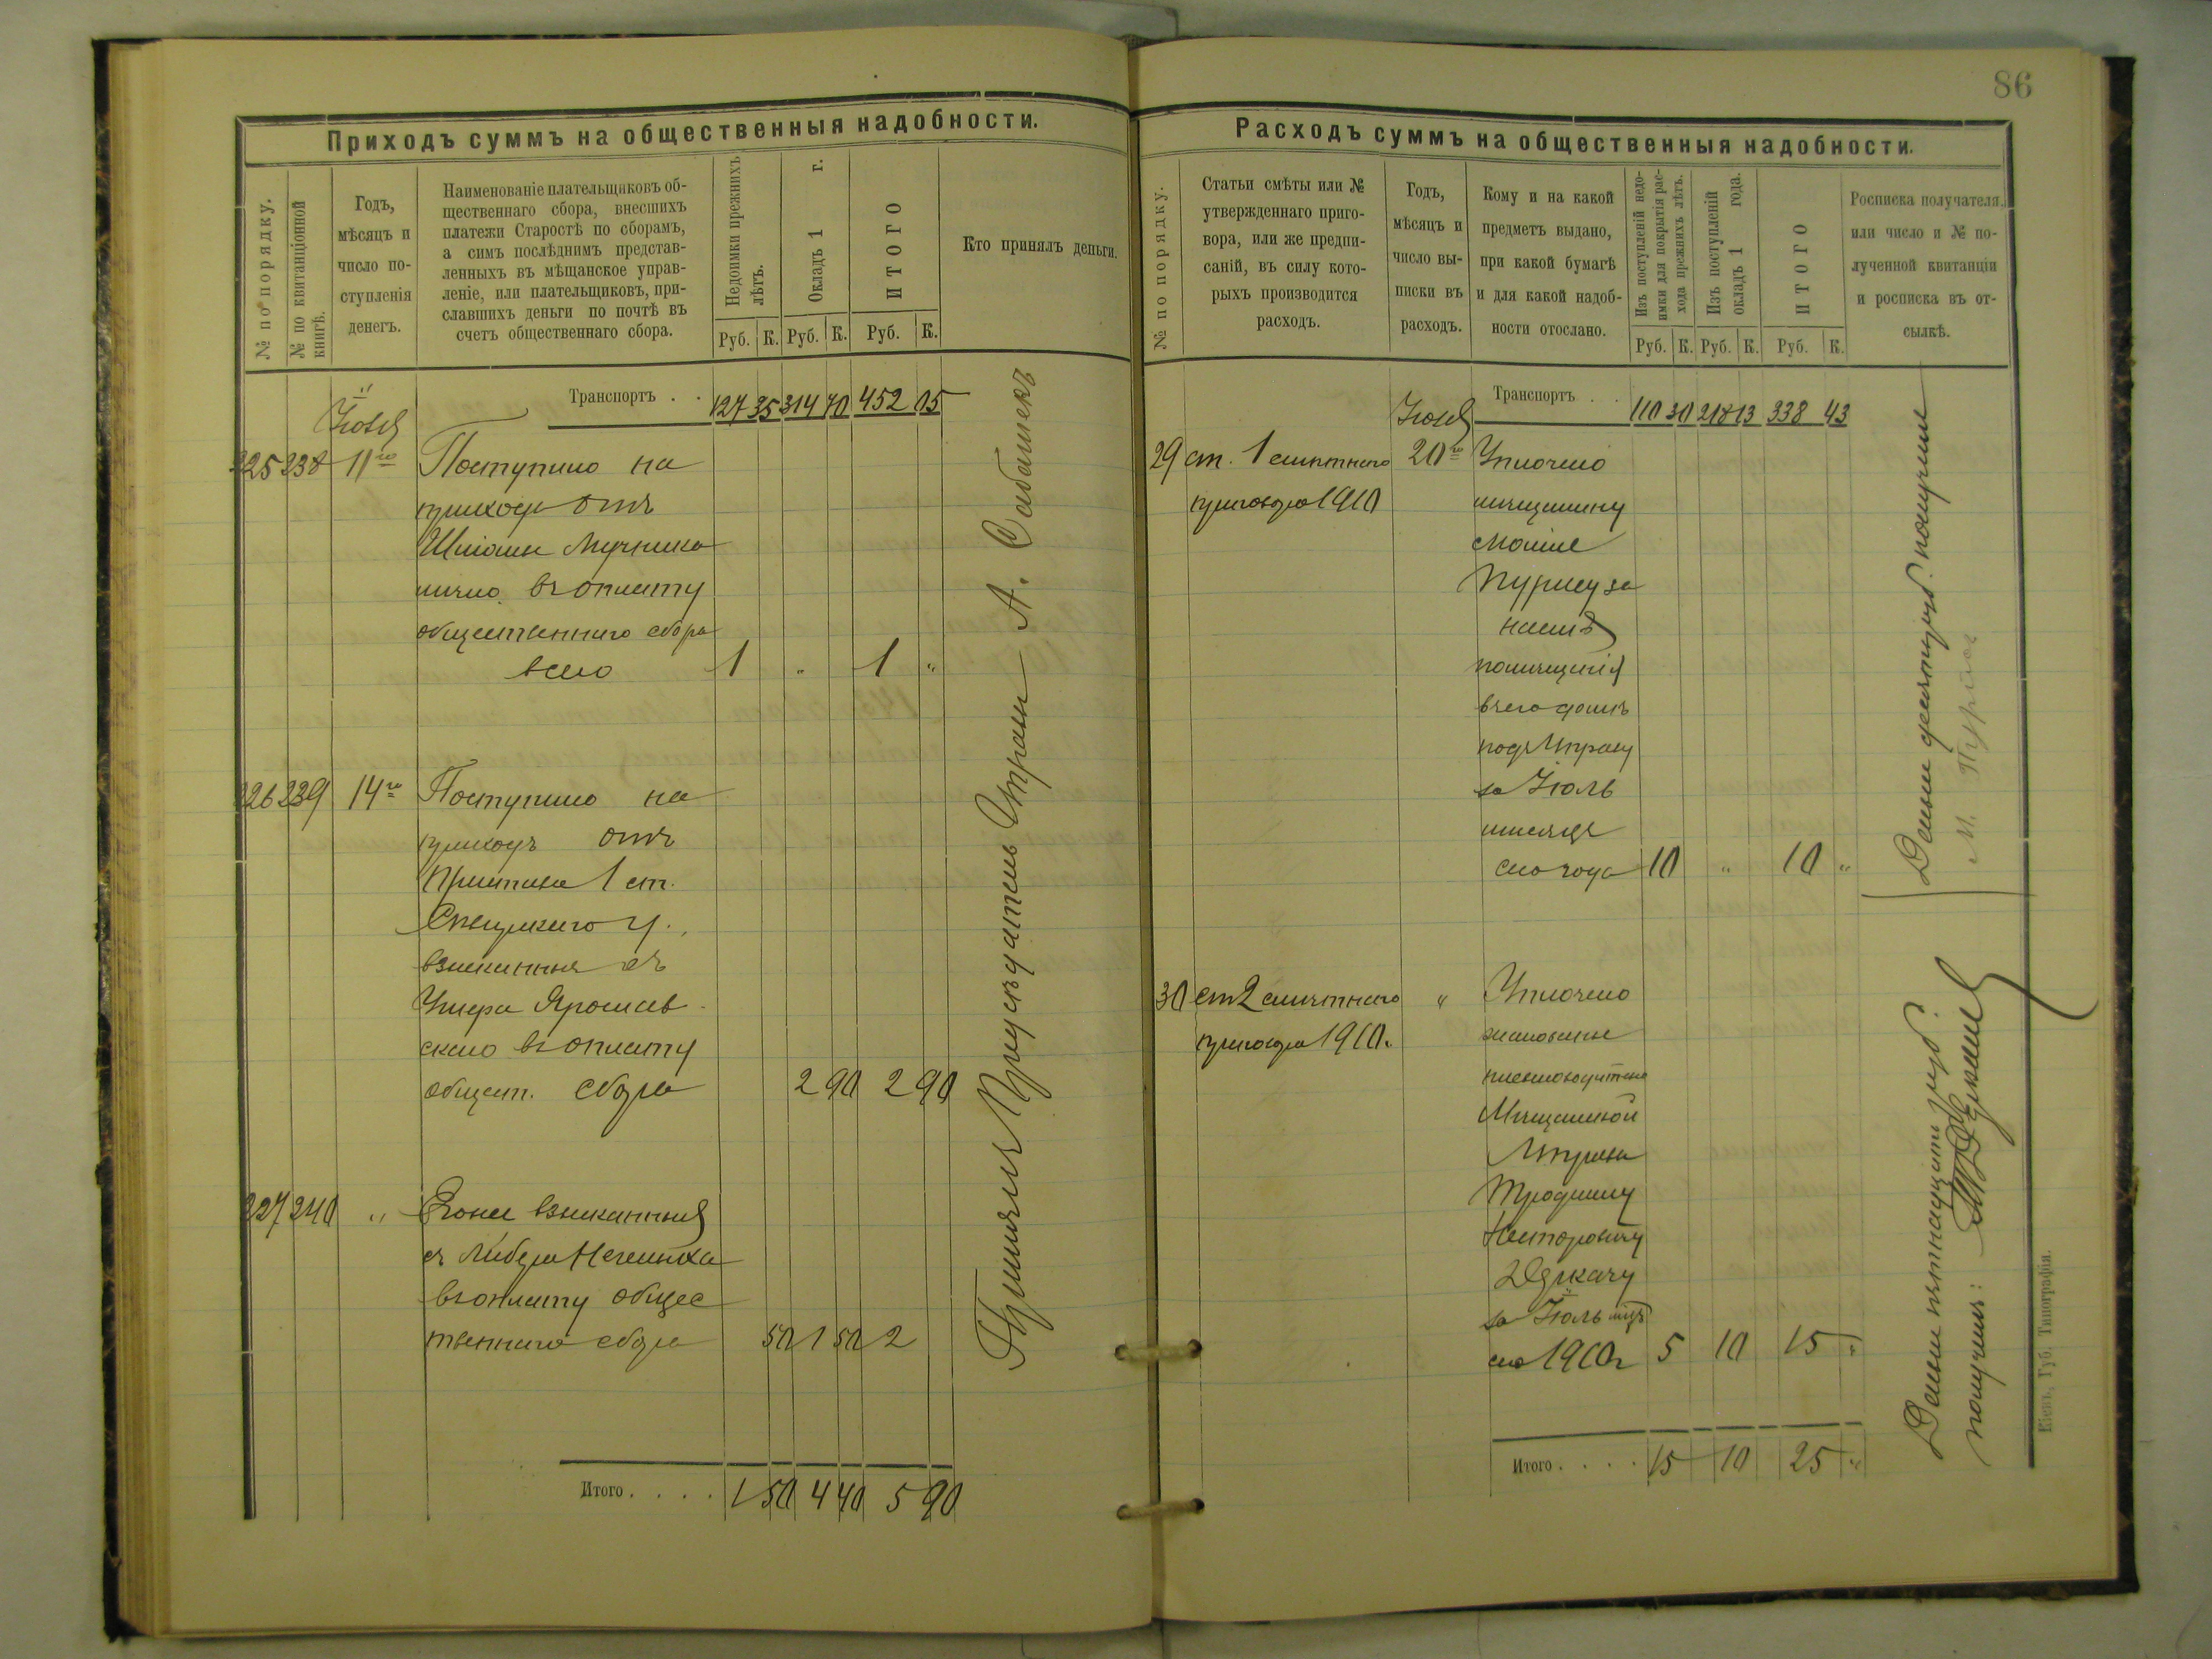 86
Приходъ суммъ на общественныя надобности.
№ по порядку.
№ по квитанціонной книгѣ.
Годъ,
мѣсяцъ и
число по-
ступленія
денегъ.
Наименованіе плательщиковъ об-
щественнаго сбора, внесшихъ
платежи Старостѣ по сборамъ,
а симъ послѣднимъ представ-
ленныхъ въ мѣщанское управ-
леніе, или плательщиковъ, при-
славшихъ деньги по почтѣ въ
счетъ общественнаго сбора.
Недоимки прежнихъ
лѣтъ.
Окладъ 1 г.
ИТОГО
Руб. К. Руб. К. Руб. К.
Кто принялъ деньги.
Транспортъ . . 127 35 314 70 452 05
Іюля
225 238 11го Поступило на
приходъ отъ
Шліомы Мучника
лично въ оплату
общественнаго сбора
всего 1 " 1 "
226 239 14го Поступило на
приходъ отъ
Пристава 1 ст.
у.,
взысканныя съ
Умера Ярослав
скаго въ оплату
общест. сбора 2 90 2 90
227 240 " взысканныя
съ Либера
въ оплату общес
твеннаго сбора 50 1 50 2
Итого . . . . 1 50 4 40 5 90
Принялъ Предсѣдатель Управы А.
Расходъ суммъ на общественныя надобности.
№ по порядку.
Статьи смѣты или №
утвержденнаго приго-
вора, или же предпи-
саній, въ силу кото-
рыхъ производится
расходъ.
Годъ,
мѣсяцъ и
число вы-
писки въ
расходъ.
Кому и на какой
предметъ выдано,
при какой бумагѣ
и для какой надоб-
ности отослано.
Изъ поступленій недо-
имки для покрытія рас-
хода прежнихъ лѣтъ.
Изъ поступленій
окладъ 1 года.
ИТОГО
Руб. К. Руб. К. Руб. К.
Росписка получателя,
или число и № по-
лученной квитанціи
и росписка въ от-
сылкѣ.
Транспортъ . . 110 30 218 13 338 43
Іюля
29 ст. 1 смѣтнаго 20го Уплочено
приговора 1910 мѣщанину
Мошке
Пурису за
наемъ
помѣщенія
въ его домѣ
подъ Управу
за Іюль
мѣсяцъ
сего года 10 " 10 "
30 ст 2 смѣтнаго " Уплочено
приговора 1910. жалованье
письмоводителю
Мѣщанской
Управы
Трофиму
Нестеровичу
Дѣркачу
за Іюль мцъ
сего 1910г 5 10 15 "
Итого . . . . 15 10 25 "
Деньги десять руб. получилъ
М. Пурисъ
Деньги пятнадцать руб.
получилъ: Дѣркачъ
Кіевъ, Губ. Типографія.